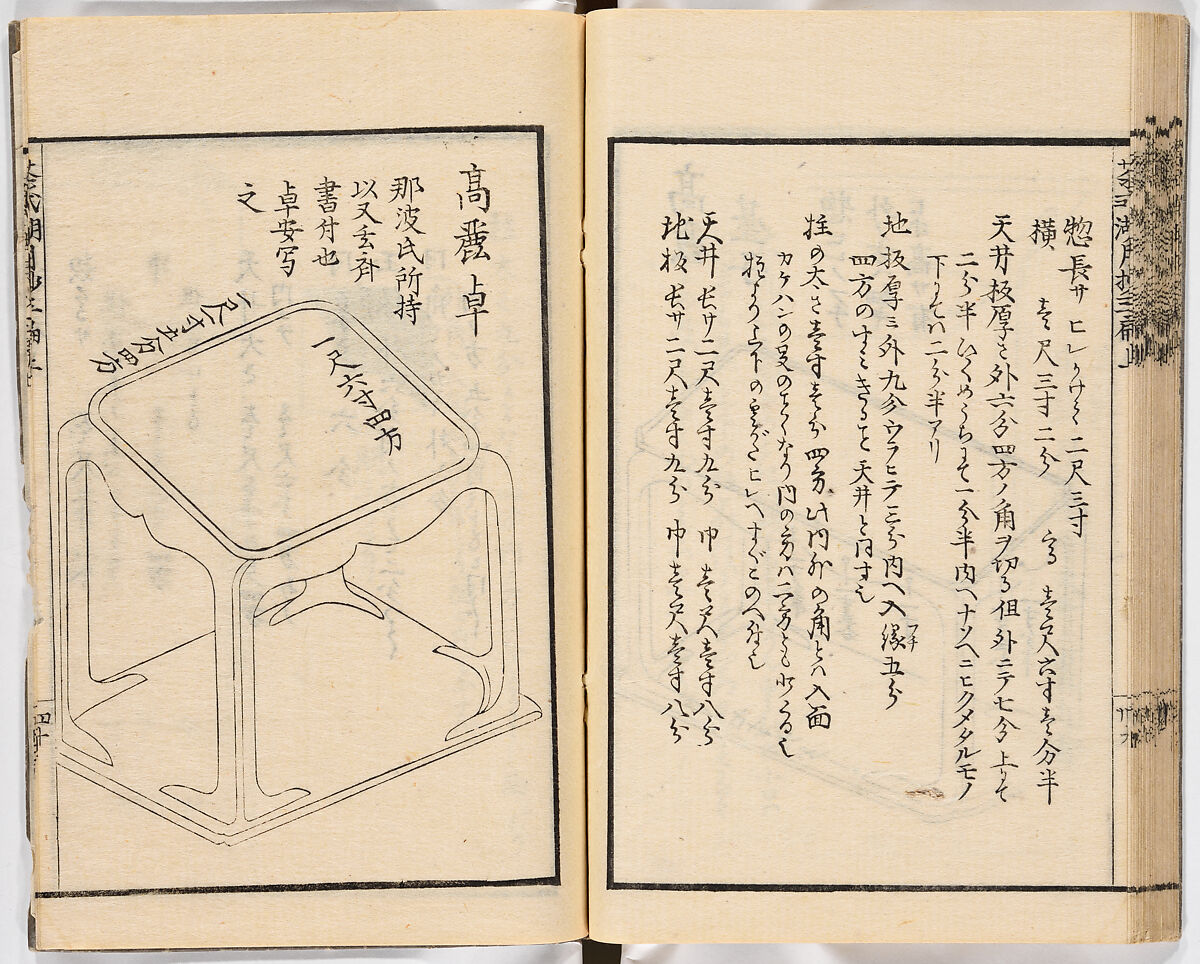 惣長サ ヒレカケテ二尺三寸
横 壱尺三寸二分 高 壱尺六寸壱分半
天井板厚サ外六分四方ノ角ヲ切ル但外ニテ七分上ニて
二分半ひくめうちニて一分半内ヘナゾヘニヒクメタルモノ
下ニてハ二分半アリ
地板厚ミ外九分ウラヒテ三分内ヘ入縁五分
フチ
四方のすミきること天井と同寸也
柱の太さ壱寸壱分四方此内外の角とハ入面
カケハンの足のことくなり内の方ハ二方とも
柱より上下の
天井 長サ二尺壱寸九分 巾 壱尺壱寸八分
地板 長サ二尺壱寸九分 巾 壱尺壱寸八分
高麗卓
那波氏所持
以又玄斎
書付也
卓安写
之
一尺六寸四方
一尺六寸五分四方